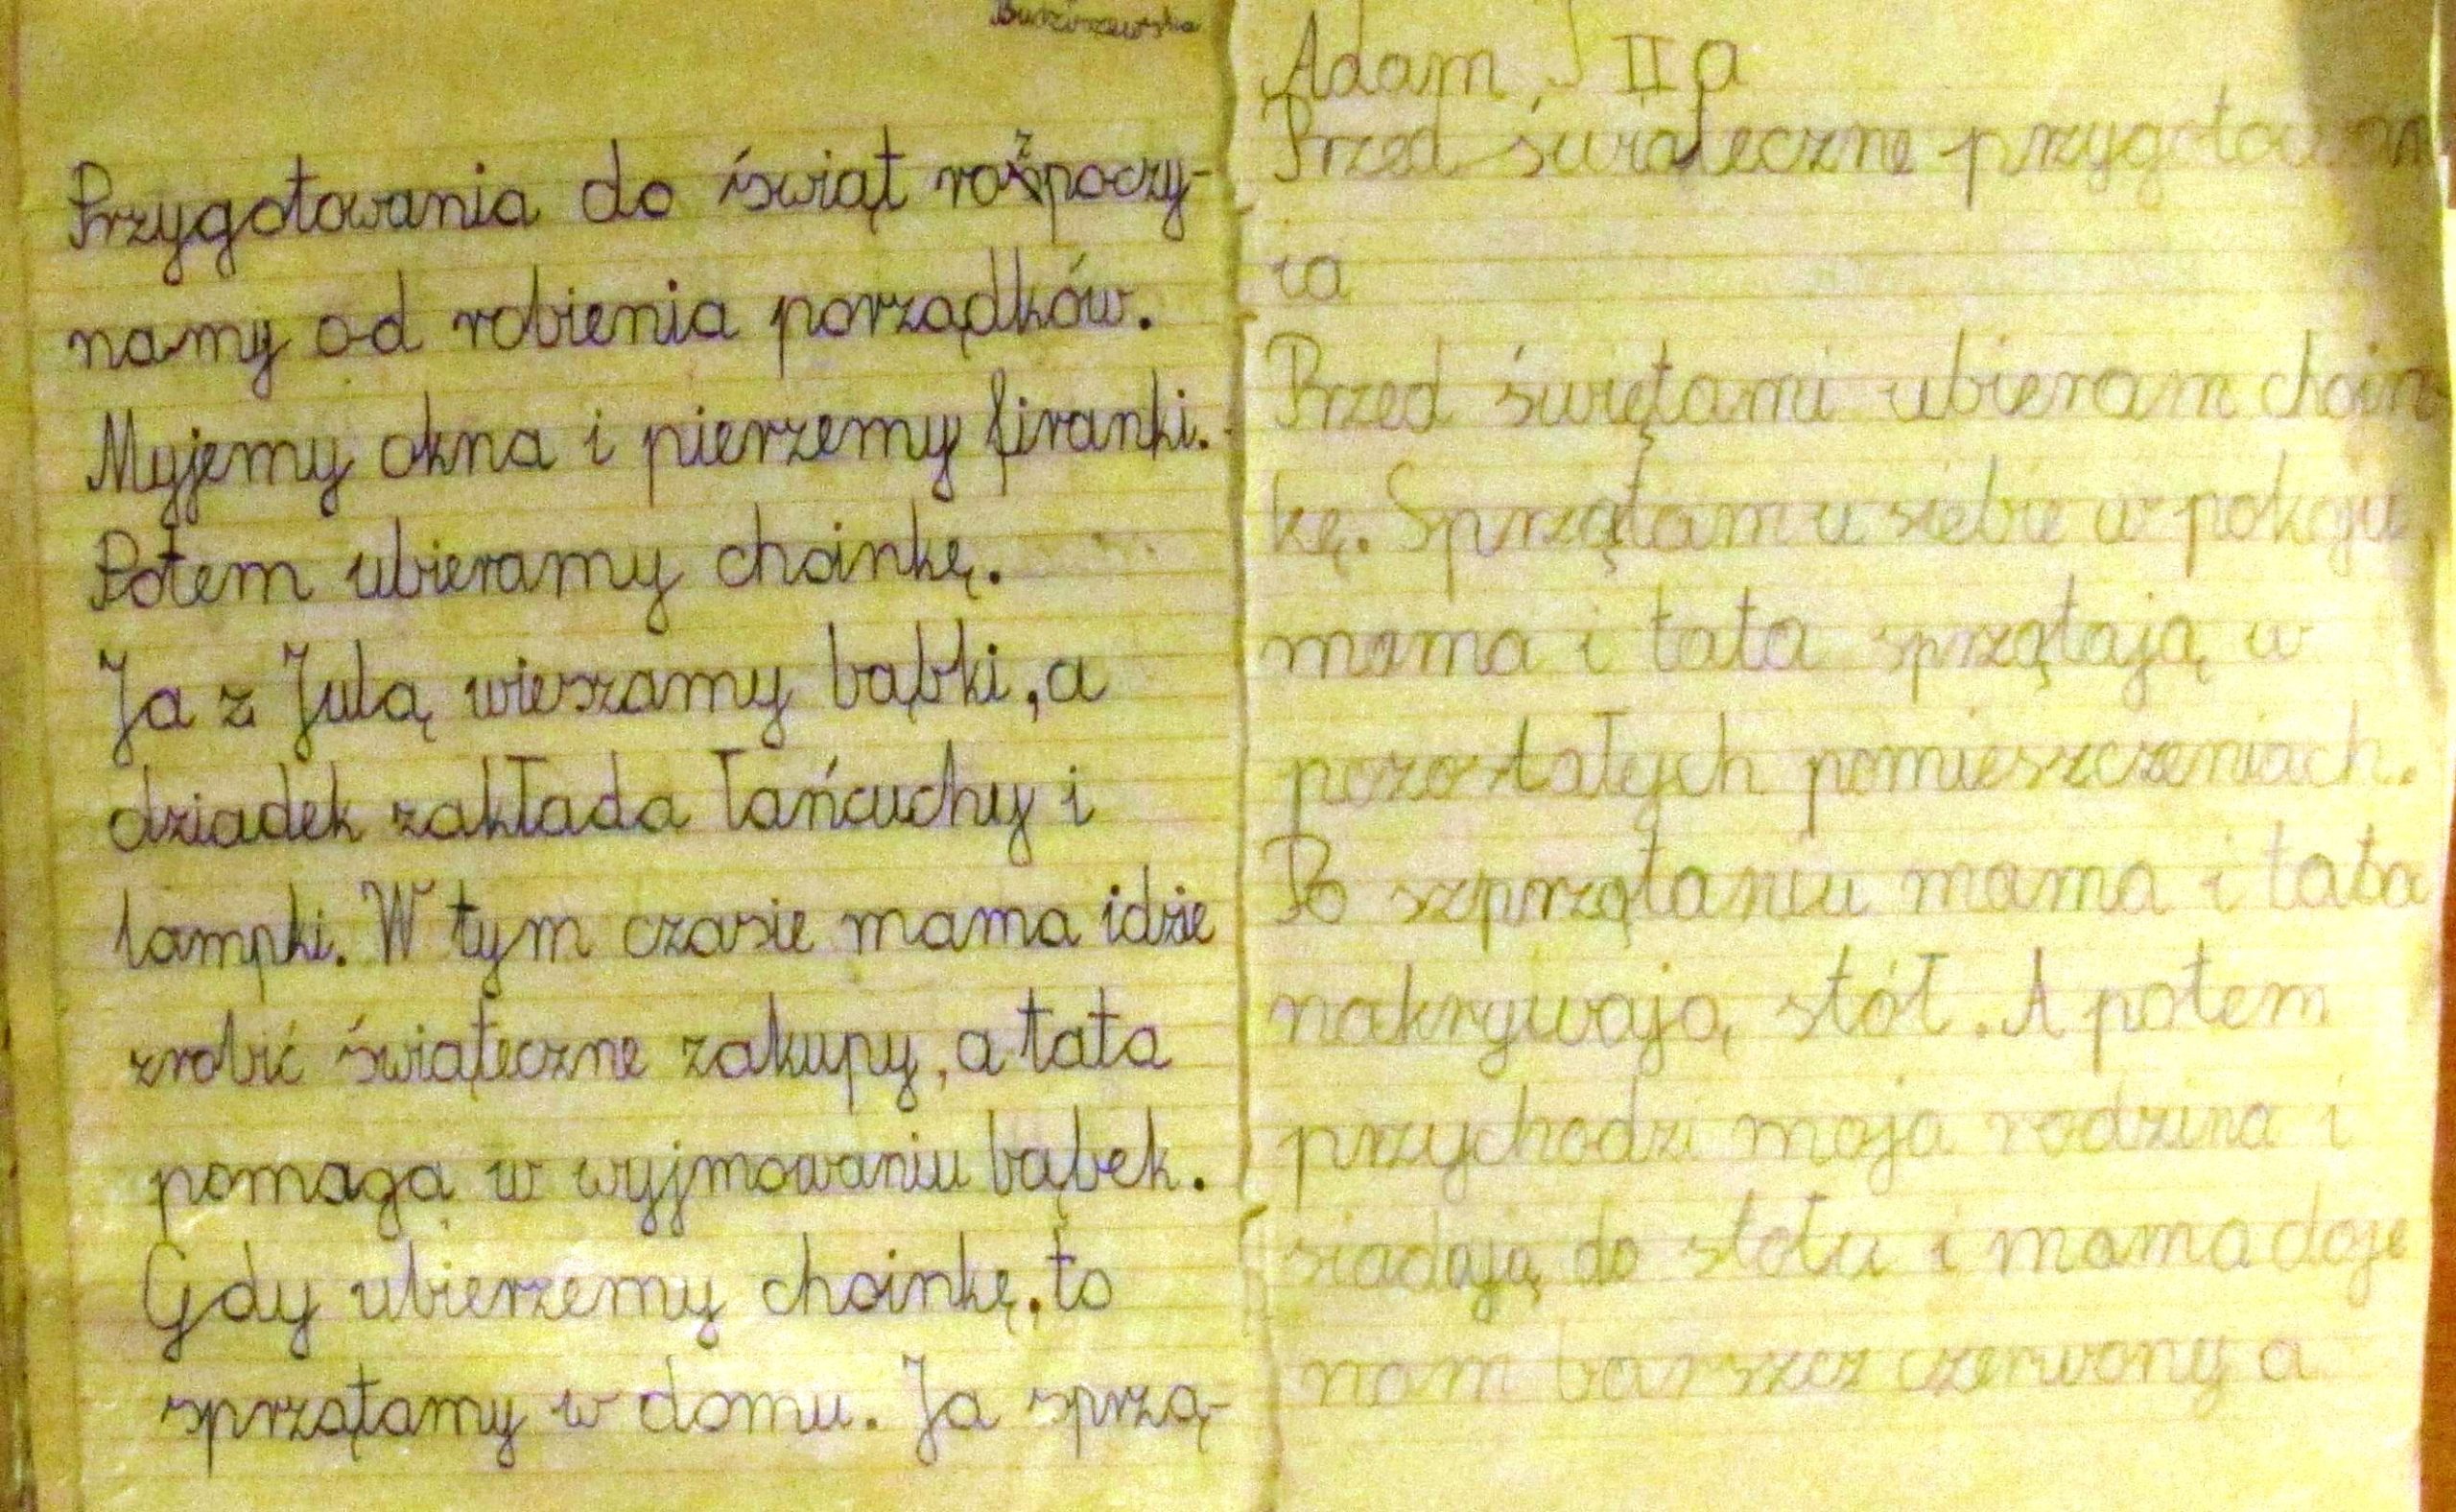 Budziszewska
Przygotowania do świąt rozpoczy-
namy od robienia porządków.
Myjemy okna i pierzemy firanki.
Potem ubieramy choinkę.
Ja z Julą wieszamy bąbki, a
dziadek zakłada łańcuchy i
lampki. W tym czasie mama idzie
zrobić świąteczne zakupy, a tata
pomaga w wyjmowaniu bąbek.
Gdy ubierzemy choinkę, to
sprzątamy w domu. Ja sprzą-
Adam J IIa
Przed świąteczne przygotowan
ia
Przed świętami ubieram choin
kę. Sprzątam u siebie w pokoju,
mama i tata sprzątają w
pozostałych pomieszczeniach.
Po szprzątaniu mama i tata
nakrywają stół. A potem
przychodzi moja rodzina i
siadają do stołu i mama daje
nam barszcz czerwony a